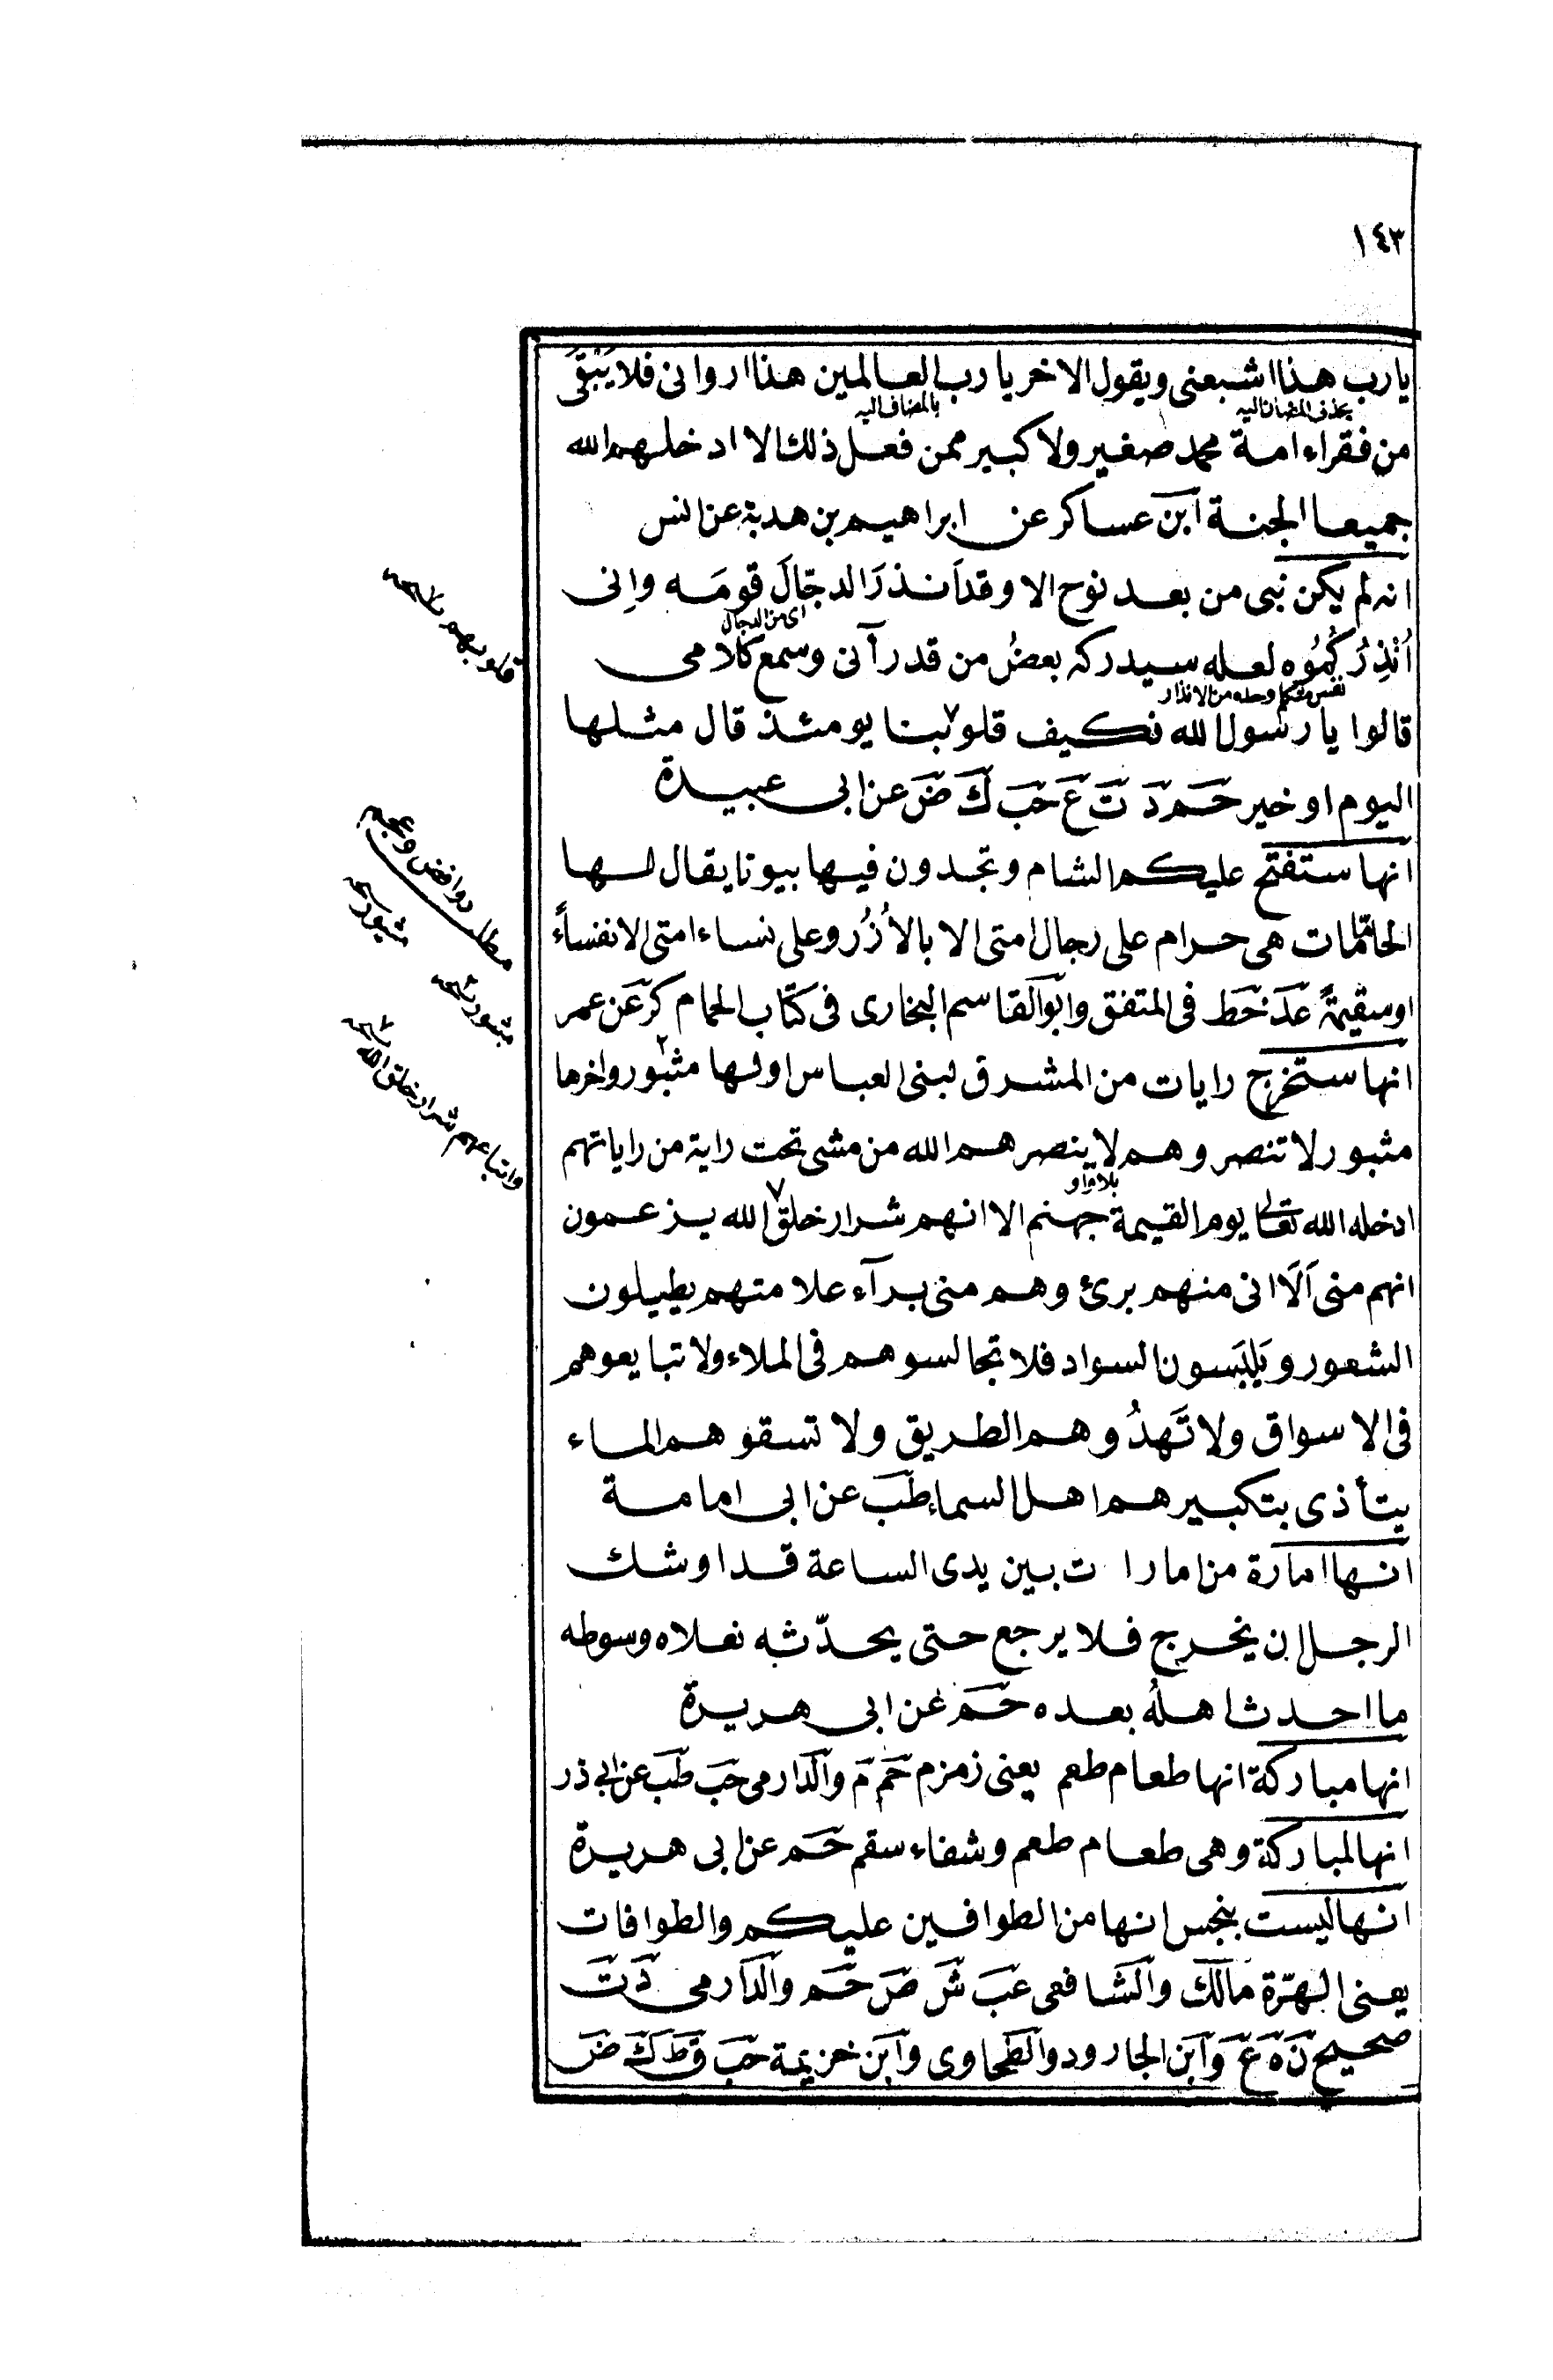 ١٤٣
يا رب هذا اشبعنى ويقول الاخر يا رب العالمين هذا اروانى فلا يَبْقَى
بحذف المضاف اليه
بالمضاف اليه
من فقراء امة محمد صغير ولا كبير ممن فعل ذلك الا ادخلهم الله
جميعا الجنة ابن عساكر عن ابراهيم بن هدبة عن انس
انه لم يكن نبى من بعد نوح الا وقد اَنذرَ الدجّالَ قومَه وانى
اى من الدجال
اُنْذِرُكُمُوه لعله سيدركه بعضُ من قد رآنى وسمع كلامى
نفس متكلم وحده من الانذار
قالوا يا رسول الله فكيف قلوبنا يومئذ قال مثلها
اليوم او خير حم د ت ع حب ك ض عن ابى عبيدة
انها ستفتح عليكم الشام وتجدون فيها بيوتا يقال لها
الحمّامات هى حرام على رجال امتى الا بالأزُر وعلى نساء امتى الا نفساءً
او سقيمةً عد خط فى المتفق وابو القاسم البخارى فى كتاب الحمام كر عن عمر
انها ستخرج رايات من المشرق لبنى العباس اولها مثبور واخرها
مثبور لا تنصروهم لا ينصرهم الله من مشى تحت راية من راياتهم
بلا واو
ادخله الله تعالى يوم القيمة جهنم الا انهم شرار خلق الله يزعمون
انهم منى اَلَا انى منهم برئ وهم منى برآء علامتهم يطيلون
الشعور ويَلبَسون السواد فلا تجالسوهم فى الملاء ولا تبايعوهم
فى الاسواق ولا تَهدُوهم الطريق ولا تسقوهم الماء
يتأذى بتكبيرهم اهل السماء طب عن ابى امامة
انها امارة من امارات بين يدى الساعة قد اوشك
الرجل ان يخرج فلا يرجع حتى يحدّثه نعلاه وسوطه
ما احدث اهلُه بعده حم عن ابى هريرة
انها مباركة انها طعام طعم يعنى زمزم حم م والدارمى حب طب عن ابى ذر
انها لمباركة وهى طعام طعم وشفاء سقم حم عن ابى هريرة
انها ليست بنجس انها من الطوافين عليكم والطوافات
يعنى الهرّة مالك والشافعى عب ش ص حم والدارمى د ت
صحيح ن ه ع وابن الجارود والطحاوى وابن خزيمة حب قط ك ض
قلوبهم
مطلب روافض وعجم
مثبور
مثبور
واتباعهم شرار خلق الله